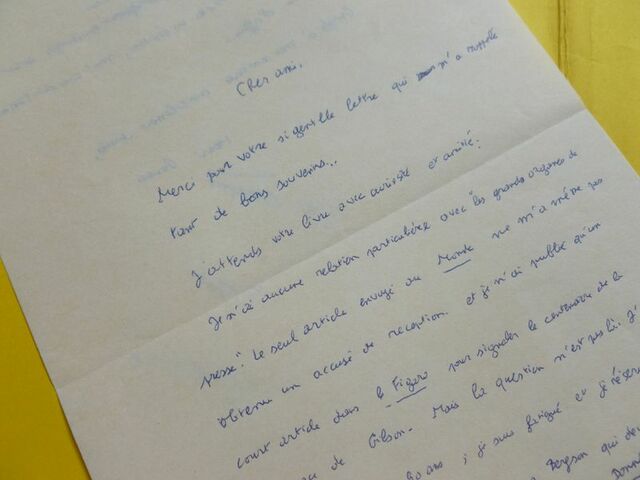 Cher ami,
Merci pour votre si gentille lettre qui m'a rappelé
tant de bons souvenirs...
J'attends votre livre avec curiosité et amitié.
Je n'ai aucune relation particulière avec "les grands organes de
presse". Le seul article envoyé au Monde ne m'a même pas
obtenu un accusé de réception. et je n'ai publié qu'un
court article dans le Figaro pour signaler le centenaire de la
de Gilson. Mais la question n'est pas là. J'
ans ; je suis fatigué et je réser
Bergson qui de